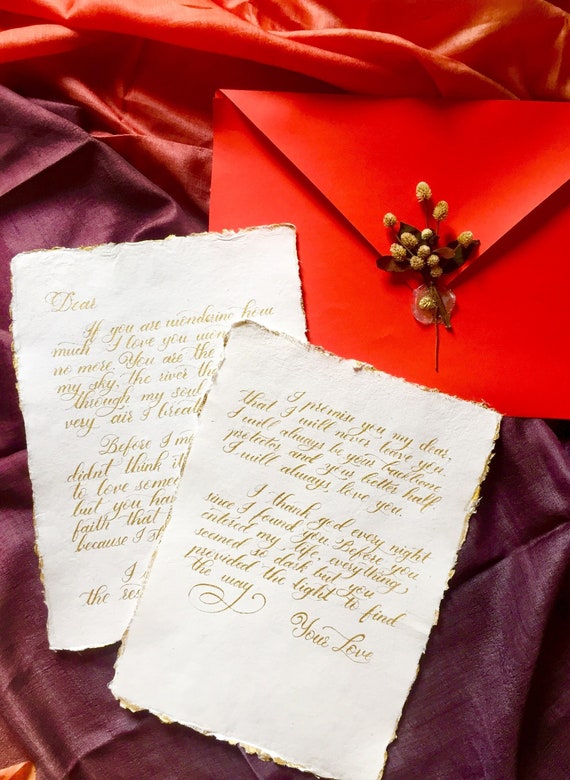 Dear
If you are wondering how
much I love you
no more. You are the
my sky, the river
through my soul
very air I
Before I
didn't think
to love
but you
faith that
because I
I
the
I promise you my dear,
that I will never leave you.
I will always be your backbone
protector and your better half
I will always, love you.
I thank god every night
since I found you. Before you
entered my life, everything
seemed so dark but you
provided the light to find
the way
Your Love